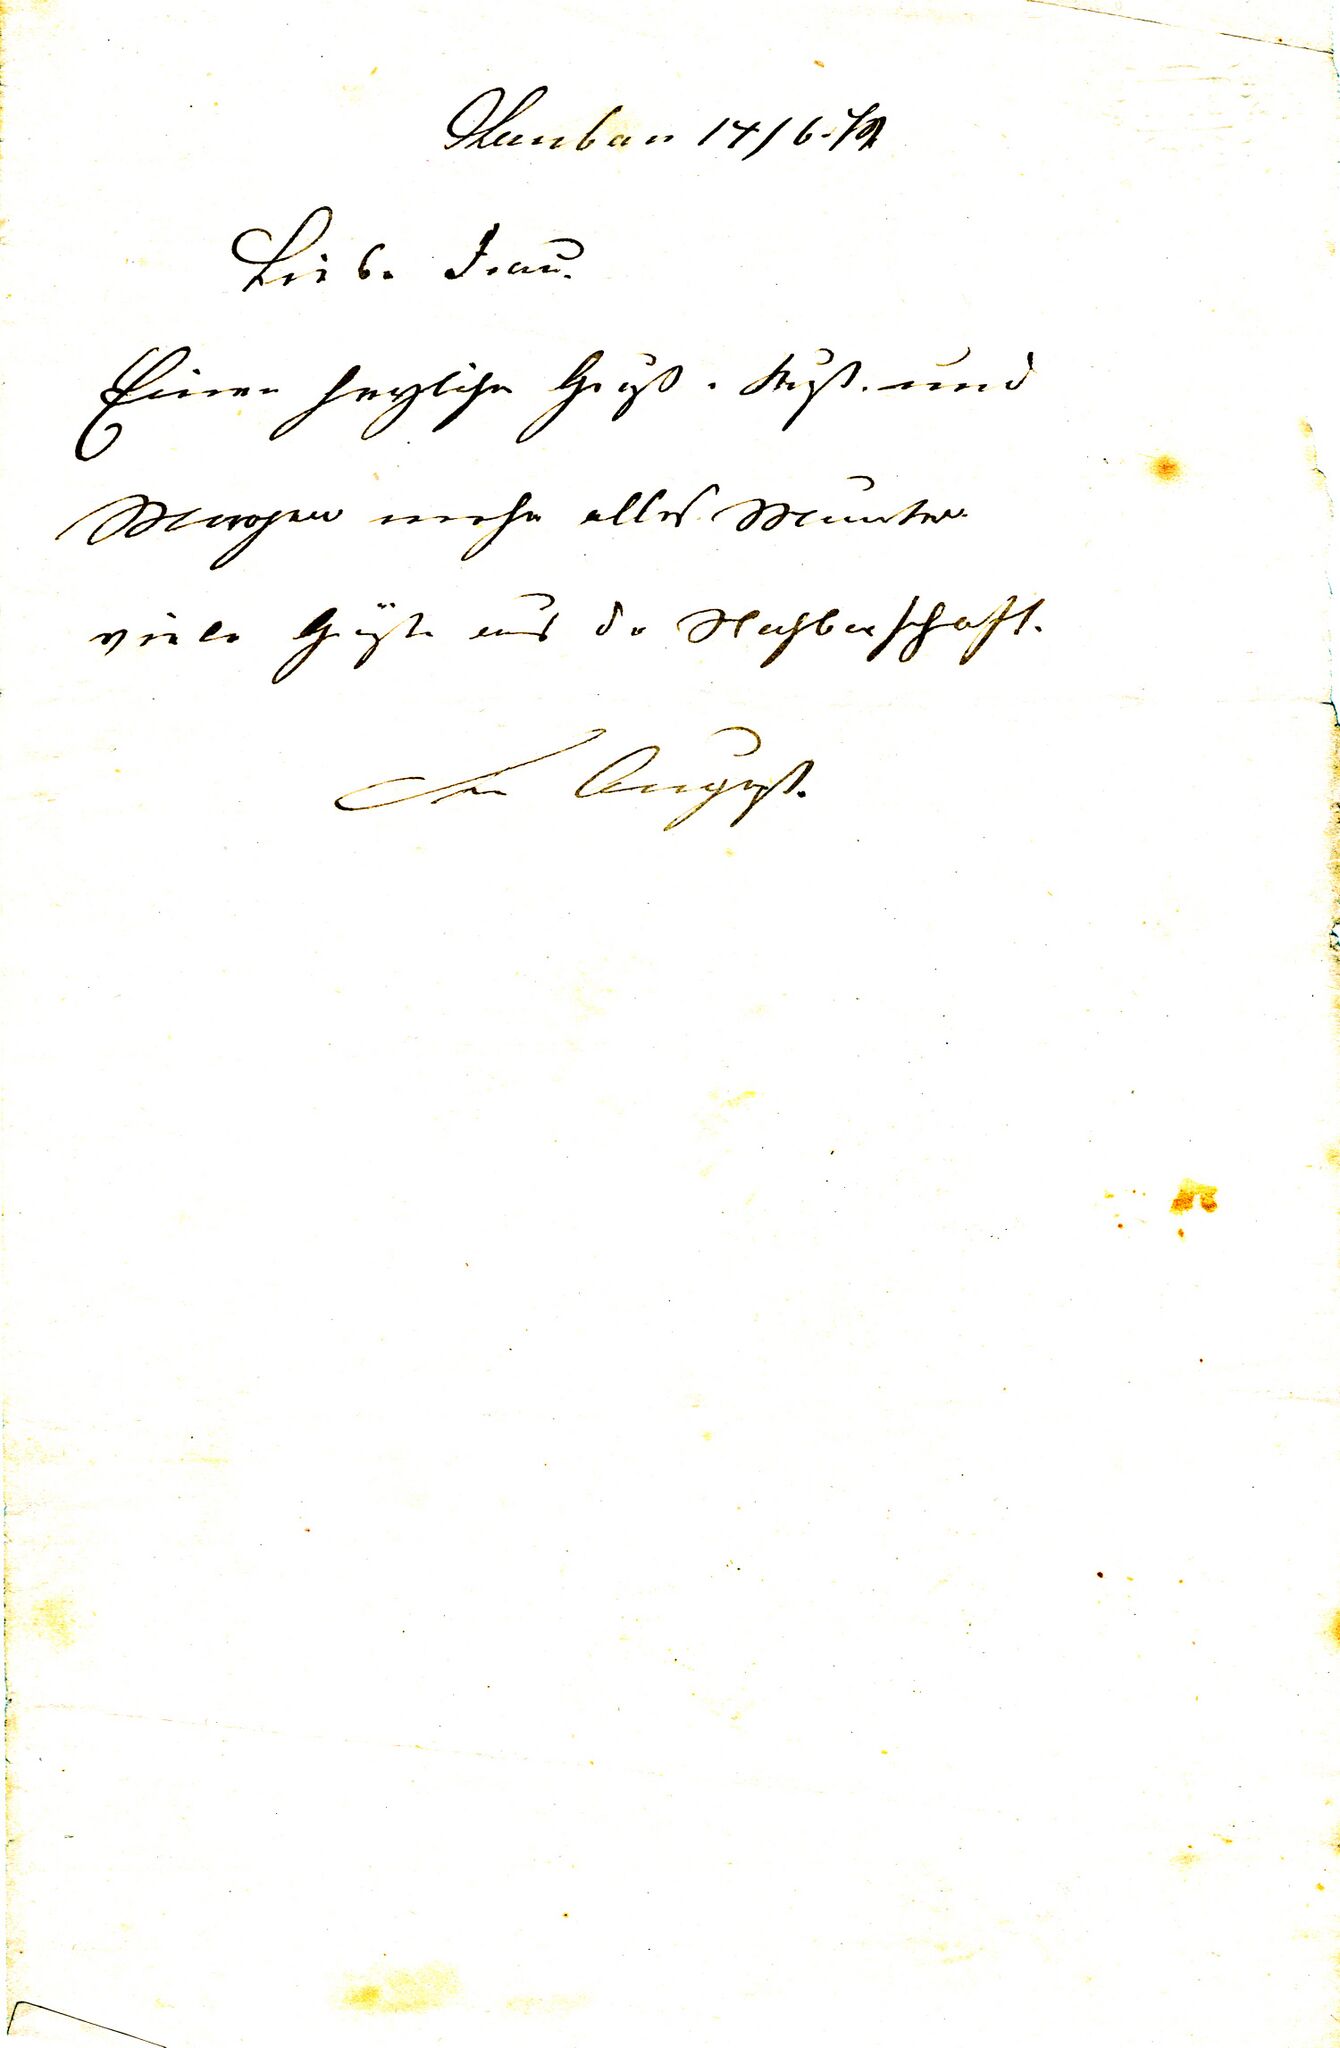 14/6.
Liebe Frau.
Einen herzlichen Gruß u. Kuß. und
Morgen mehr alles Munter
viele Grüße aus der Nachbarschaft.
Dein August.